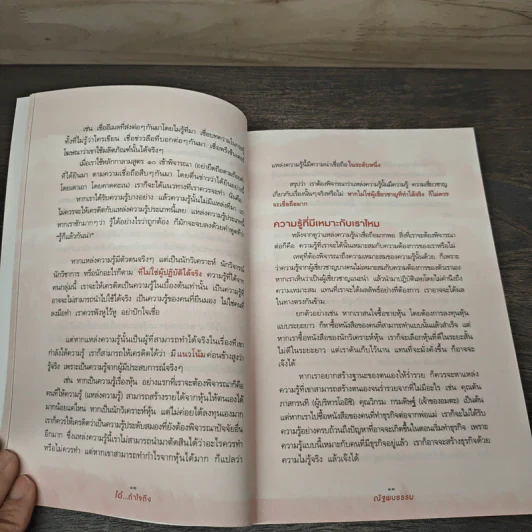 เช่น เชื่ออีเมลที่ส่งต่อๆ กันมาโดยไม่รู้ที่มา เชื่อบทความในเว็บ
ทั้งที่ไม่รู้ว่าใครเขียน เชื่อข่าวลือที่บอกต่อๆ กันมา เชื่อพรีเซ็นเตอร์
โฆษณาว่าเขาใช้ผลิตภัณฑ์นั้นได้จริงๆ
เมื่อเราใช้หลักกาลามสูตร ๑๐ เข้าพิจารณา (อย่ายึดถือตามถ้อยคำ
ที่ได้ยินมา ตามความเชื่อถือสืบๆ กันมา โดยตื่นข่าวว่าได้ยินอย่างนี้
โดยเดาเอา โดยคาดคะเน) เราก็จะได้แนวทางที่เราควรจะทำ นั่นคือ
หากเราได้รับความรู้บางอย่าง แล้วความรู้นั้นไม่มีแหล่งที่มา ก็
ไม่ควรจะให้เครดิตกับแหล่งความรู้ประเภทนี้เลย แหล่งความรู้ประเภทนี้
หากเราซักมากๆ ว่า รู้ได้อย่างไรว่าถูกต้อง ก็มักจะจบลงด้วยคำพูดที่ว่า
"รู้ก็แล้วกันน่า"
หากแหล่งความรู้มีตัวตนจริงๆ แต่เป็นนักวิเคราะห์ นักวิจารณ์
นักวิชาการ หรือนักอะไรก็ตาม ที่ไม่ใช่ผู้ปฏิบัติได้จริง ความรู้ที่ได้จาก
คนกลุ่มนี้ เราจะให้เครดิตเป็นความรู้ในเบื้องต้นเท่านั้น เป็นความรู้ที่
อาจจะไม่สามารถนำไปใช้ได้จริง เป็นความรู้ของคนที่ยืนมอง ไม่ใช่คนที่
ลงมือทำ เราควรฟังหูไว้หู อย่าปักใจเชื่อ
แต่หากแหล่งความรู้นั้นเป็นผู้ที่สามารถทำได้จริงในเรื่องที่เขา
กำลังให้ความรู้ เราก็สามารถให้เครดิตได้ว่า มีแนวโน้มค่อนข้างสูงว่า
รู้จริง เพราะเป็นความรู้จากผู้มีประสบการณ์จริงๆ
เช่น หากเป็นความรู้เรื่องหุ้น อย่างแรกที่เราจะต้องพิจารณาก็คือ
คนที่ให้ความรู้ (แหล่งความรู้) สามารถสร้างรายได้จากหุ้นให้ตนเองได้
มากน้อยแค่ไหน หากเป็นนักวิเคราะห์หุ้น แต่ไม่ค่อยได้ลงทุนเองมาก
เราก็ควรให้เครดิตว่าเป็นความรู้ประดับสมองที่ยังต้องพิจารณาปัจจัยอื่น
อีกมาก ซึ่งแหล่งความรู้นั้นเราไม่สามารถนำมาตัดสินได้ว่าอะไรควรทำ
หรือไม่ควรทำ แต่หากเขาสามารถทำกำไรจากหุ้นได้มาก ก็แปลว่า
๑๒
ใด๋...กำไรถึง
แหล่งความรู้นี้มีความน่าเชื่อถือในระดับหนึ่ง
สรุปว่า เราต้องพิจารณาว่าแหล่งความรู้นั้นมีความรู้ ความเชี่ยวชาญ
เกี่ยวกับเรื่องนั้นๆ จริงหรือไม่ หากไม่ใช่ผู้เชี่ยวชาญที่ทำได้จริง ก็ไม่ควร
จะเชื่อถือมาก
ความรู้ที่มีเหมาะกับเราไหม
หลังจากดูว่าแหล่งความรู้น่าเชื่อถือมากพอ สิ่งที่เราจะต้องพิจารณา
ต่อก็คือ ความรู้ที่เราจะได้นั้นเหมาะสมกับความต้องการของเราหรือไม่
เหตุที่ต้องพิจารณาถึงความเหมาะสมของความรู้นั้นด้วย ก็เพราะ
ว่าความรู้จากผู้เชี่ยวชาญบางคนไม่เหมาะสมกับความต้องการของตัวเราเอง
หากเราเห็นว่าเป็นผู้เชี่ยวชาญแนะนำ แล้วนำมาปฏิบัติเลยโดยไม่คำนึงถึง
ความเหมาะสม แทนที่เราจะได้ผลลัพธ์อย่างที่ต้องการ เราอาจจะได้ผล
ในทางตรงกันข้าม
ยกตัวอย่างเช่น หากเราสนใจซื้อขายหุ้น โดยต้องการลงทุนหุ้น
แบบระยะยาว ก็หาซื้อหนังสือของคนที่สามารถทำแบบนั้นแล้วสำเร็จ แต่
หากเราซื้อหนังสือของนักวิเคราะห์หุ้น เราก็จะเลือกหุ้นที่ดีในระยะสั้น
ไม่ดีในระยะยาว แต่เราดันเก็บไว้นาน แทนที่จะมั่งคั่งขึ้น ก็อาจจะ
เจ๊งได้
หากเราอยากสร้างฐานะของตนเองให้ร่ำรวย ก็ควรจะหาแหล่ง
ความรู้ที่เขาสามารถสร้างตนเองจนร่ำรวยจากที่ไม่มีอะไร เช่น คุณตัน
ภาสกรนที (ผู้บริหารโออิชิ) คุณวิกรม กรมดิษฐ์ (เจ้าของอมตะ) เป็นต้น
แต่หากเราไปซื้อหนังสือของคนที่ทำธุรกิจต่อจากพ่อแม่ เราก็จะไม่ได้รับ
ความรู้อย่างครบถ้วนถึงปัญหาที่อาจจะเกิดขึ้นในตอนเริ่มทำธุรกิจ เพราะ
ความรู้แบบนี้เหมาะกับคนที่มีธุรกิจอยู่แล้ว เราก็อาจจะสร้างธุรกิจด้วย
ความไม่รู้จริง แล้วเจ๊งได้
๑๓
ณัฐพบธรรม